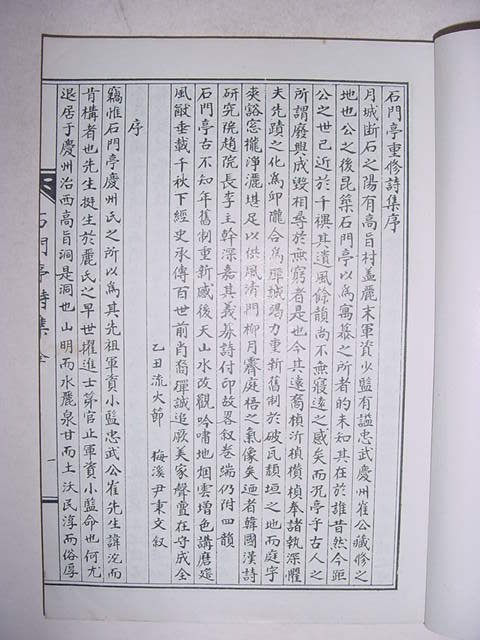 石門亭重修詩集序
月城断石之陽有高旨村盖麗末軍資少監有諡忠武慶州崔公藏修之
地也公之後昆築石門亭以為寓慕之所者的未知其在於誰昔然今距
公之世已近於千禩其遺風餘韻尚不無寖遠之感矣而况亭乎古人之
所謂廢興成毀相尋於無窮者是也今其遠裔楨沂楨横楨奉諸執深懼
夫先蹟之化為邱隴合為殫誠竭力重新舊制於破瓦頹垣之地而庭宇
奕豁窓櫳淨灑堪足以供風清門柳月霽庭梧之氣像矣迺者韓國漢詩
研究院趙院長李主幹深嘉其義募詩付印故畧叙卷端仍附四韻
石門亭古不知年舊制重新感後天山水改觀吟嘯地烟雲增色講磨筵
風猷垂載千秋下經史承傳百世前肖裔殫誠追厥美家聲亶在守成全
乙丑流火節 梅溪尹東文叙
序
竊惟石門亭慶州氏之所以為其先祖軍資小監忠武公崔先生諱沇而
肯構者也先生挺生於麗氏之早世擢進士第官止軍資小監命也何尤
退居于慶州治西高旨洞是洞也山明而水麗泉甘而土沃民淳而俗厚
石門亭詩集 全
一